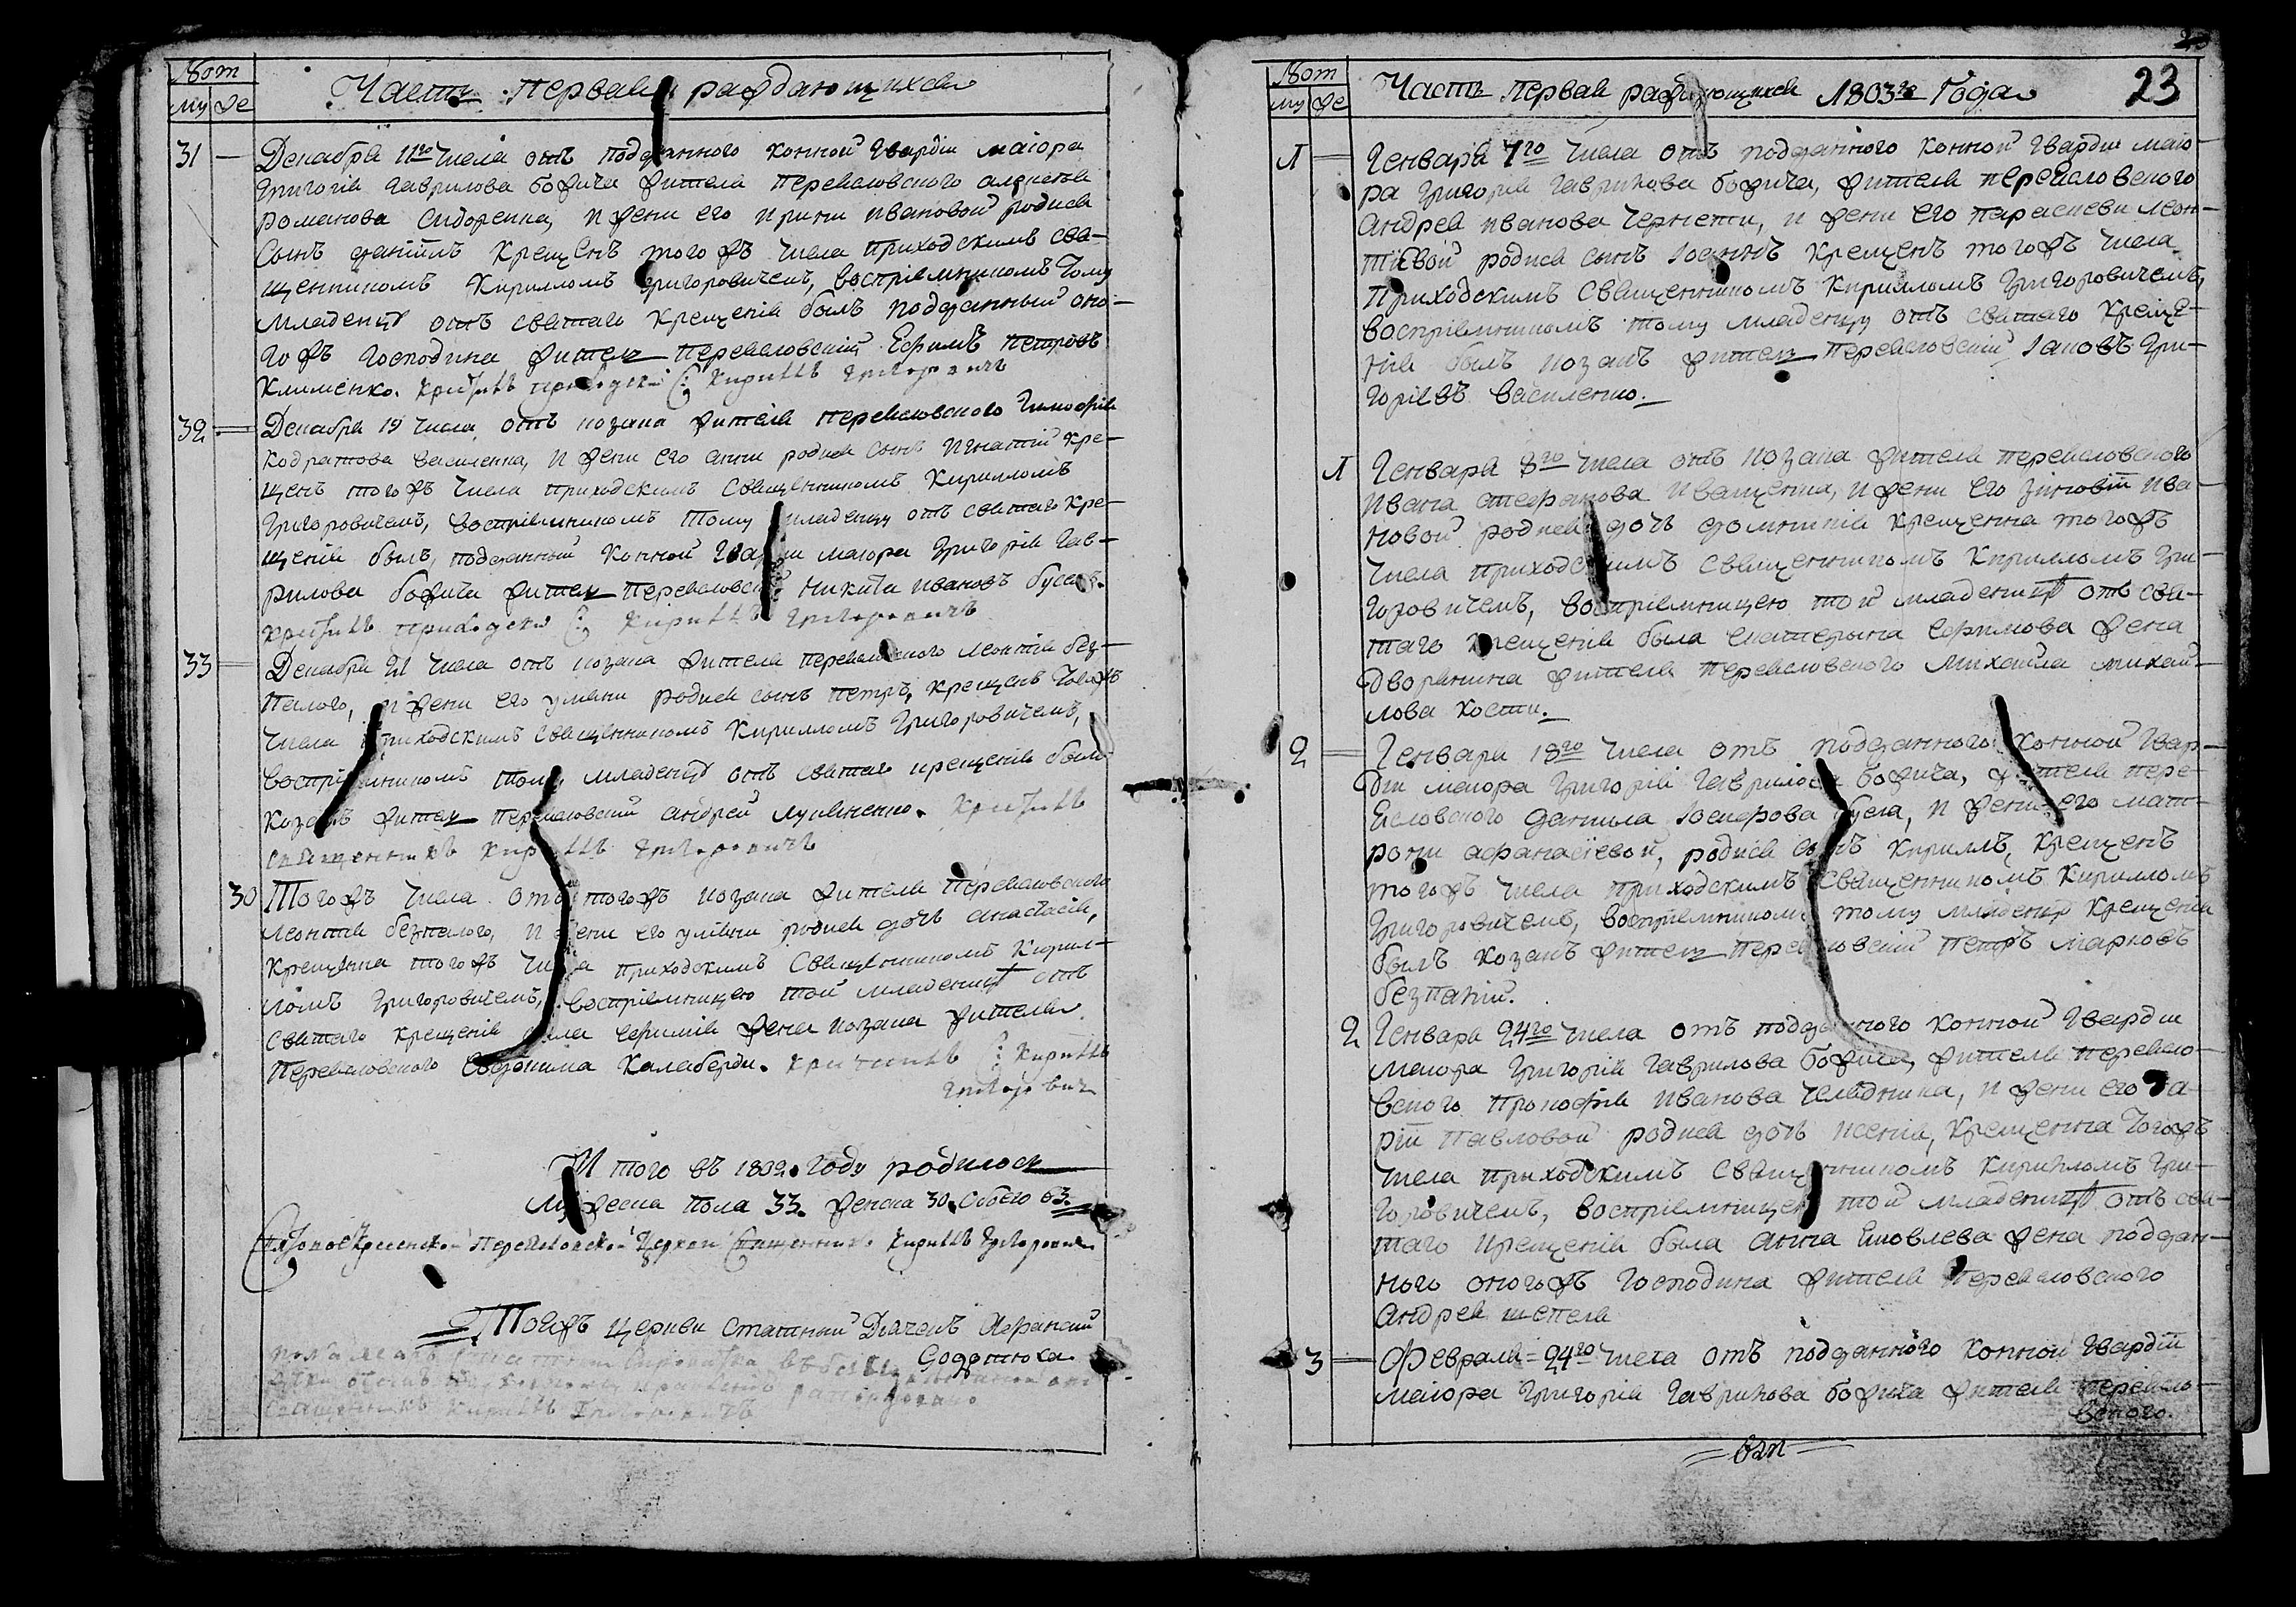 № от
му же
Часть первая раждающихся
31 Декабря 11го числа отъ подданного конной гвардіи маіора
Григорія Гаврилова божича жителя переяеловского алексѣя
романова сидоренка, и жени его ирини ивановой родися
Сынъ даніилъ крещенъ того жъ числа приходскимъ свя-
щенникомъ Кирилломъ Григоровичемъ, воспріемникомъ тому
младенцу отъ святаго крещенія былъ подданный оно-
го жъ господина житель переяеловскій Ефимъ петровъ
Клименко. Крестилъ Кириллъ Григоровичъ
32 Декабря 19 числа отъ козака жителя переяеловского Тимофія
Кодратова василенка, и жени его анни родися сынъ Игнатій кре-
щенъ того жъ числа приходскимъ священникомъ Кирилломъ
Григоровичемъ, воспріемникомъ тому младенцу отъ святаго кре-
щенія былъ, подданный конной гвардіи маіора Григорія Гав-
рилова божича житель переяеловскій Никита ивановъ
Крестилъ Кириллъ Григоровичъ
33 Декабря 21 числа отъ козака жителя переяеловского леонтія без-
палого, и жени его уляни родися сынъ петръ, крещенъ тогожъ
числа приходскимъ священникомъ Кирилломъ Григоровичемъ,
воспріемникомъ тому младенцу отъ святаго крещенія былъ
козакъ житель переяеловскій андрей лукяненко. Крестилъ
священникъ Кириллъ Григоровичъ
30 Того жъ числа отъ того жъ козака жителя переяеловского
леонтія безпалого, и жени его уляни родися дочь анастасія,
крещенна того жъ числа приходскимъ священникомъ Кирил-
ломъ Григоровичемъ, воспріемницею той младеници отъ
святаго крещенія была жена козака жителя
переяеловского Калаберди. Крестилъ Кириллъ
Григорович
И того въ 1802. году родилося
мужеска пола 33. женска 30. обоего 63.
переяеловской церкви священникъ Кириллъ Григоровичъ
Тояжъ церкви статный Дячекъ Афанасій
священникъ Кириллъ Григоровичъ
23
№ от
му же
Часть первая раждающихся 1803го Года
1 Генваря 7го числа отъ подданного конной гвардіи маіо-
ра Григорія Гаврилова божича, жителя переяеловского
андрея иванова чернети, и жени его параскеви леон-
тіевой родися сынъ Іоаннъ крещенъ того жъ числа
приходскимъ священникомъ Кирилломъ Григоровичемъ,
воспріемникомъ тому младенцу отъ святаго креще-
нія былъ козакъ житель переяеловскій Іаковъ Гри-
горіевъ василенко.
1 Генваря 8го числа отъ козака жителя переяеловского
ивана стефанова иващенка, и жени его зіновіи ива-
новой родися дочь домникія крещенна тогожъ
числа приходскимъ священникомъ Кирилломъ Гри-
горовичемъ, воспріемницею той младеници отъ свя-
таго крещенія была екатерина ефимова жена
дворянина жителя переяеловского михаила михай-
лова кости.
2 Генваря 18го числа отъ подданного конной гвар-
діи маіора Григорія Гаврилова божича, жителя пере-
яеловского даніила Іосифова буса, и жени его мат-
рони афанасіевой, родися сынъ Кириллъ, крещенъ
того жъ числа приходскимъ священникомъ Кирилломъ
Григоровичемъ, воспріемникомъ тому младенцу крещенія
былъ козакъ житель переяеловскій петръ марковъ
безпалій.
2 Генваря 24го числа отъ подданного конной гвардіи
маіора Григорія Гаврилова божича, жителя переяело-
вского прокофія иванова челядника, и жени его да-
ріи павловой родися дочь ксенія, крещенна тогожъ
числа приходскимъ священникомъ Кирилломъ Гри-
горовичемъ, воспріемницею той младеници отъ свя-
таго крещенія была анна яковлева жена поддан-
ного оного жъ господина жителя переяеловского
андрея шепеля
3 Февраля 24го числа отъ подданного конной гвардіи
маіора Григорія Гаврилова божича жителя переяело-
вского.